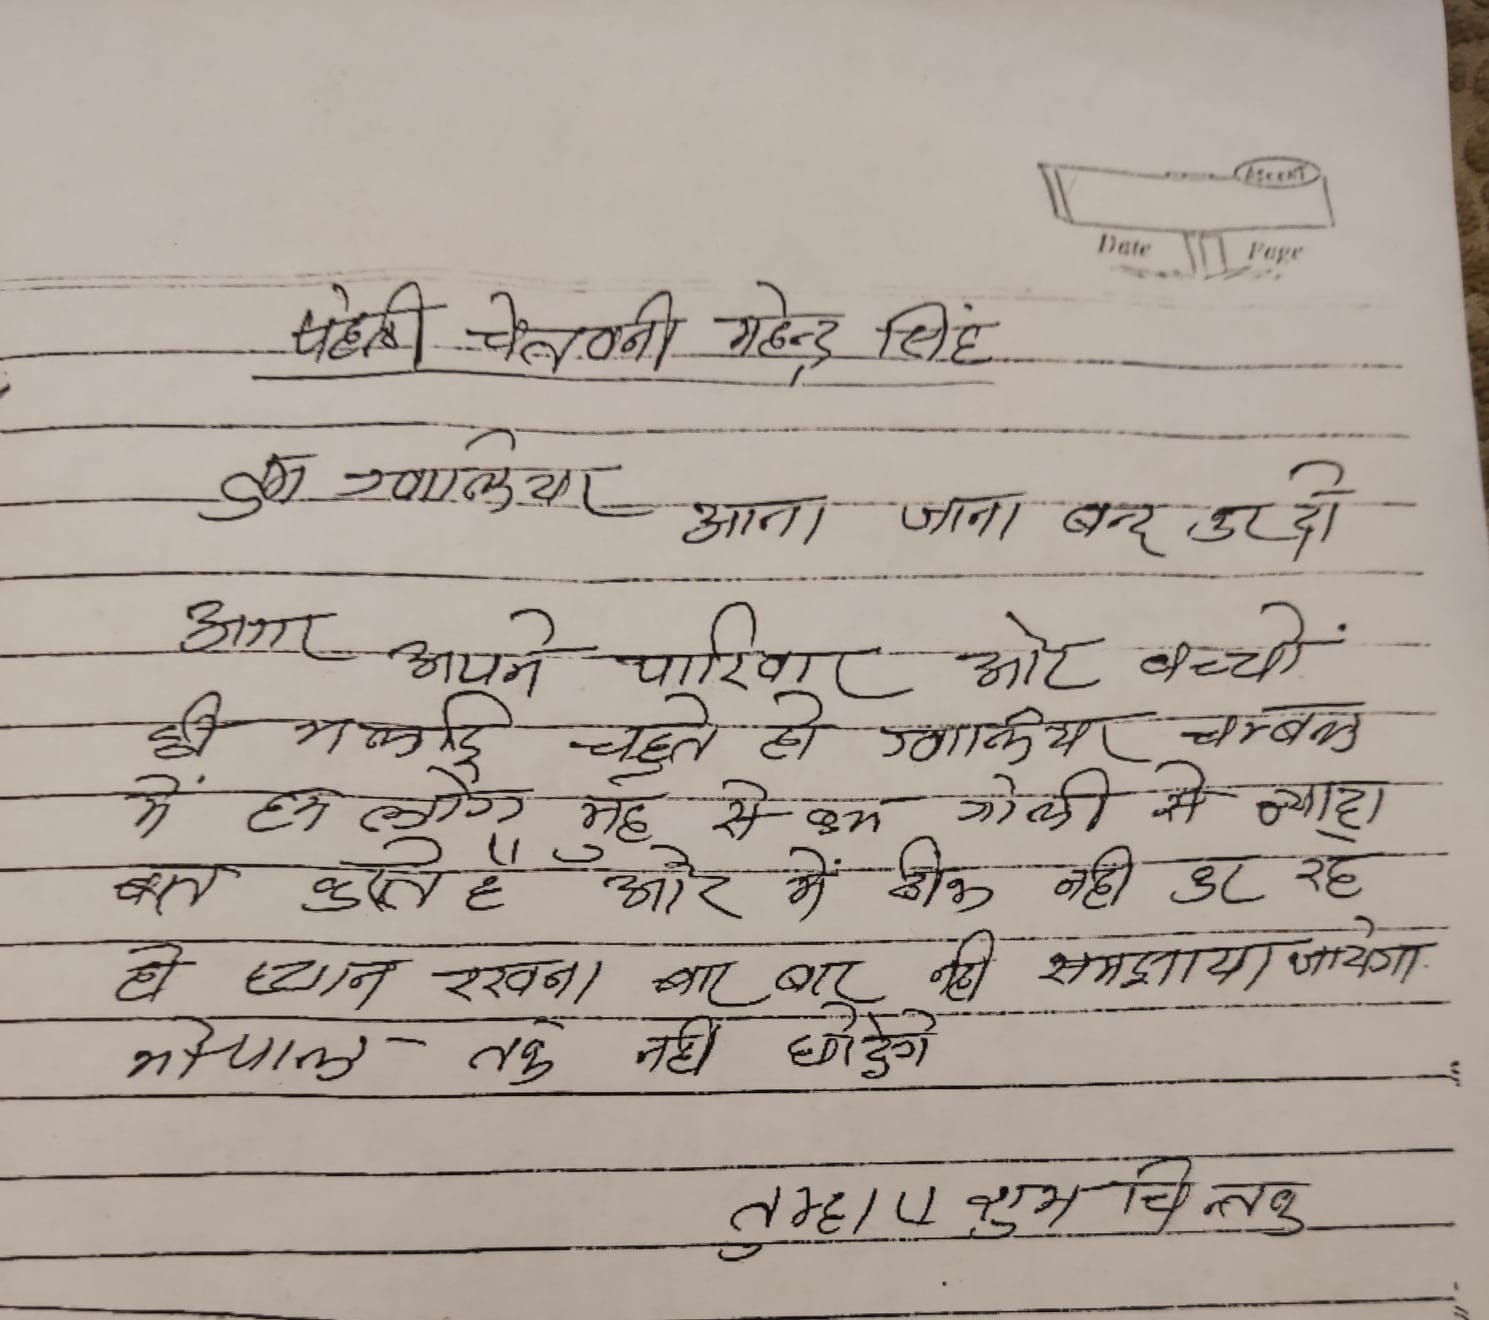 Ascent
Date Page
पहेली चेतवनी महेन्द्र सिंह
तुम ग्वालियर आना जाना बन्द कर दो
अगर अपने पारिवार ओर बच्चों
की भलाई चहते हो ग्वालियर चम्बल
में हम लोग मुंह से कम गोली से ज्यादा
बात करते है ओर में ठीक नही कर रहे
हो ध्यान रखना बार बार नही समझाया जायेगा
भोपाल तक नही छोडेगे
तुम्हारा शुभ चिन्तक